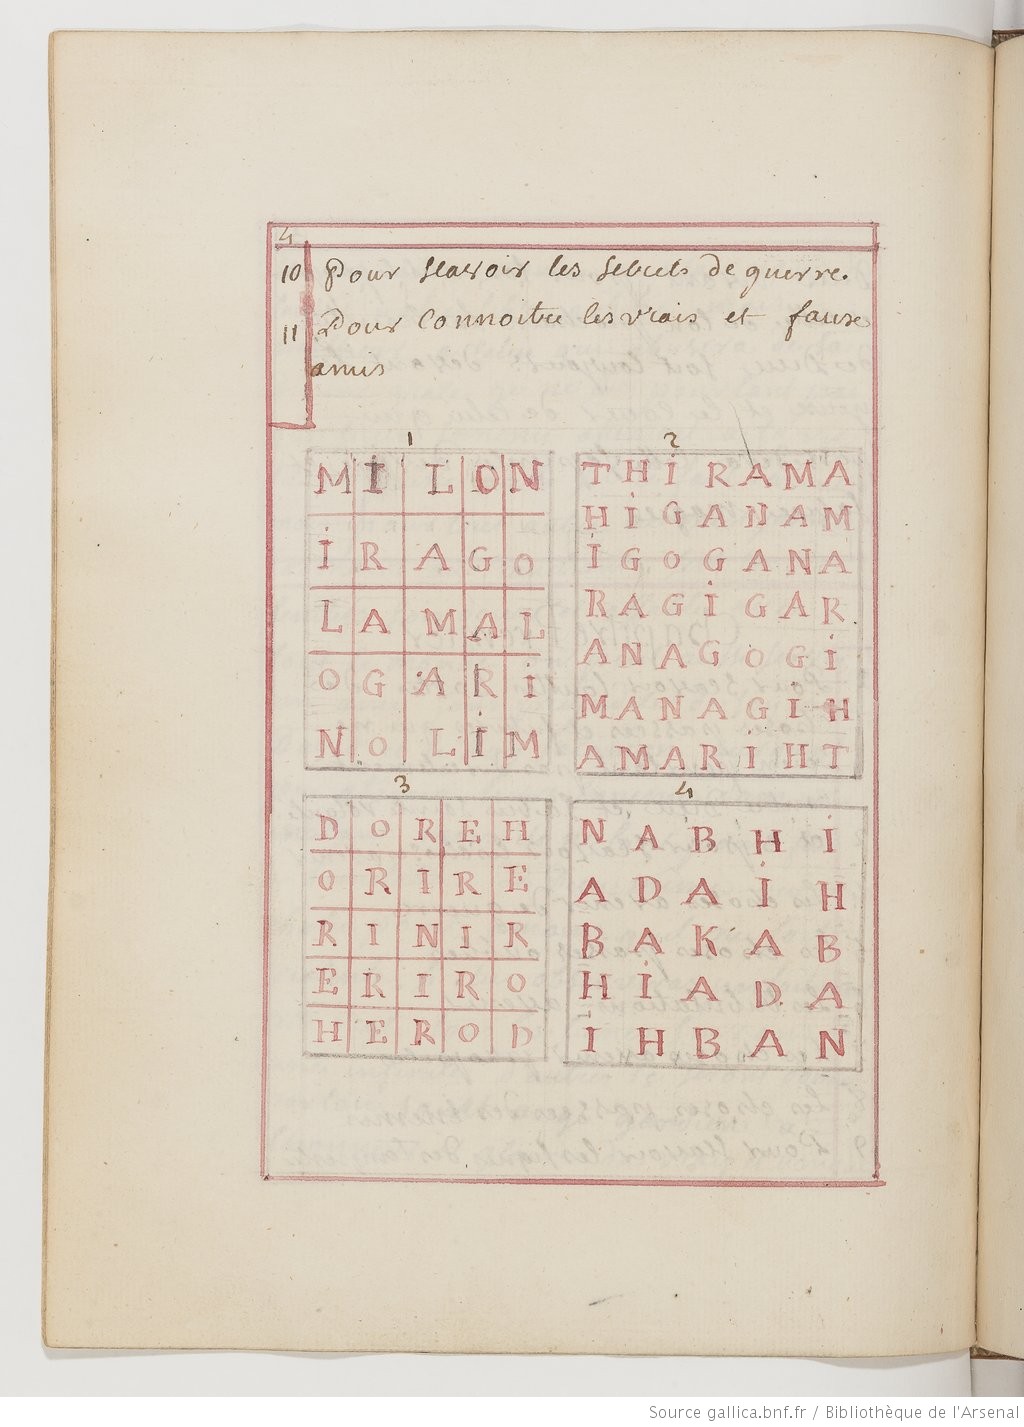 4
10 Pour scavoir les secrets de guerre.
11 Pour connoitre les vrais et faux
amis
1
MILON
IRAGO
LAMAL
OGARI
NOLIM
2
THIRAMA
HIGANAM
IGOGANA
RAGIGAR
ANAGOGI
MANAGIH
AMARIHT
3
DOREH
ORIRE
RINIR
ERIRO
HEROD
4
NABHI
ADAIH
BAKAB
HIADA
IHBAN
Source gallica.bnf.fr / Bibliothèque de l'Arsenal